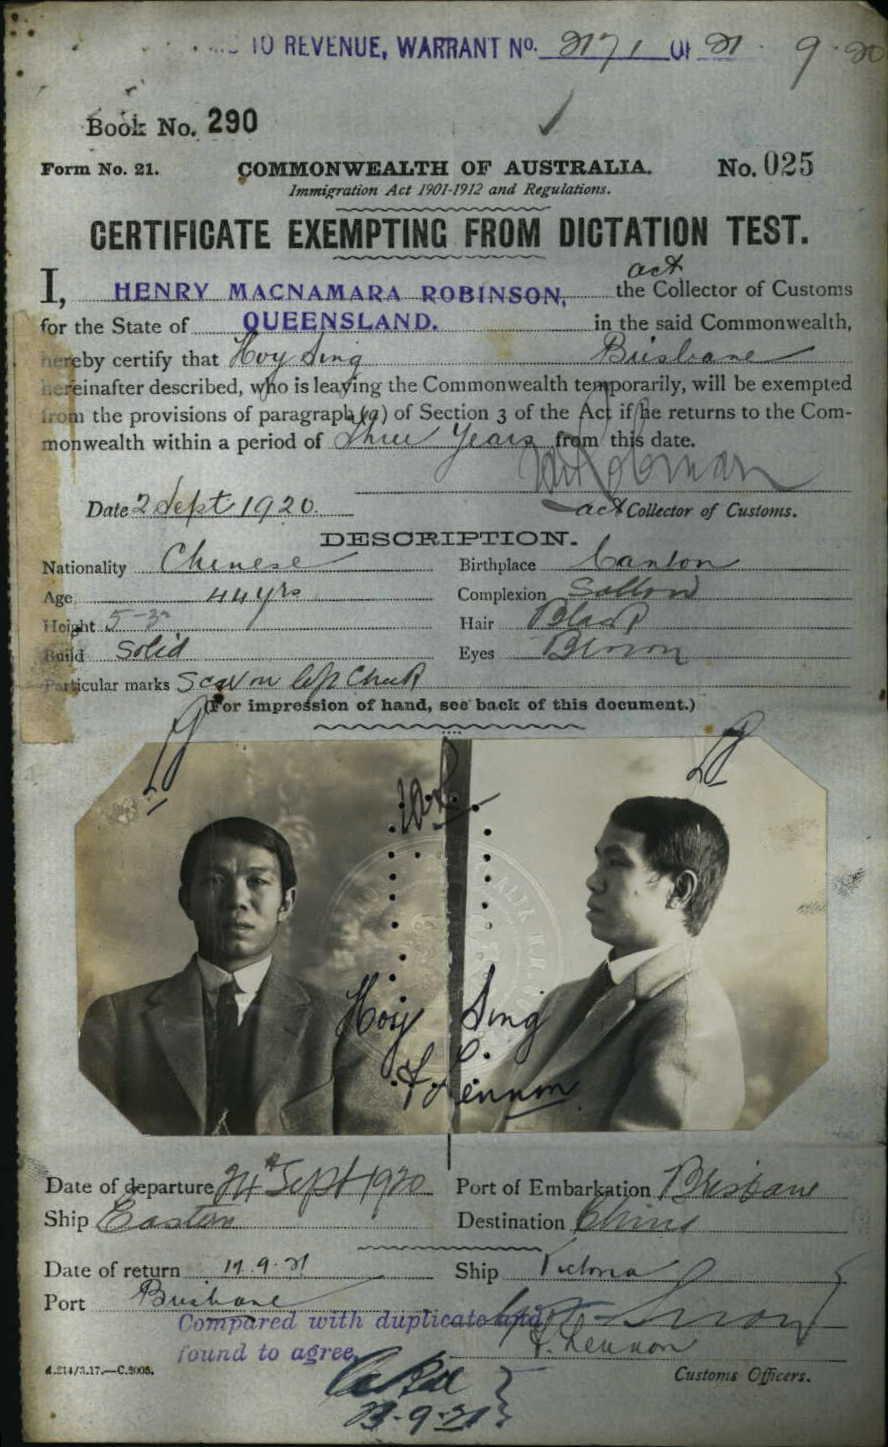 TO REVENUE, WARRANT No. 2171 OF 21. 9. 20
Book No. 290
Form No. 21. COMMONWEALTH OF AUSTRALIA. No. 025
Immigration Act 1901-1912 and Regulations.
CERTIFICATE EXEMPTING FROM DICTATION TEST.
act
I, HENRY MACNAMARA ROBINSON, the Collector of Customs
for the State of QUEENSLAND. in the said Commonwealth,
hereby certify that Hoy Sing Brisbane
hereinafter described, who is leaving the Commonwealth temporarily, will be exempted
from the provisions of paragraph (a) of Section 3 of the Act if he returns to the Com-
monwealth within a period of three Years from this date.
Date 2 Sept 1920. act Collector of Customs.
DESCRIPTION.
Nationality Chinese Birthplace Canton
Age 44 yrs Complexion Sallow
Height 5-3 Hair Black
Build Solid Eyes Brown
Particular marks Scar on left Cheek
(For impression of hand, see back of this document.)
Hoy Sing
F Lennon
Date of departure 24th Sept 1920 Port of Embarkation Brisbane
Ship Eastern Destination China
Date of return 17.9.21 Ship Victoria
Port Brisbane
Compared with duplicate and
found to agree
F. Lennon
4.214/3.17.—C.2008. Customs Officers.
23-9-21